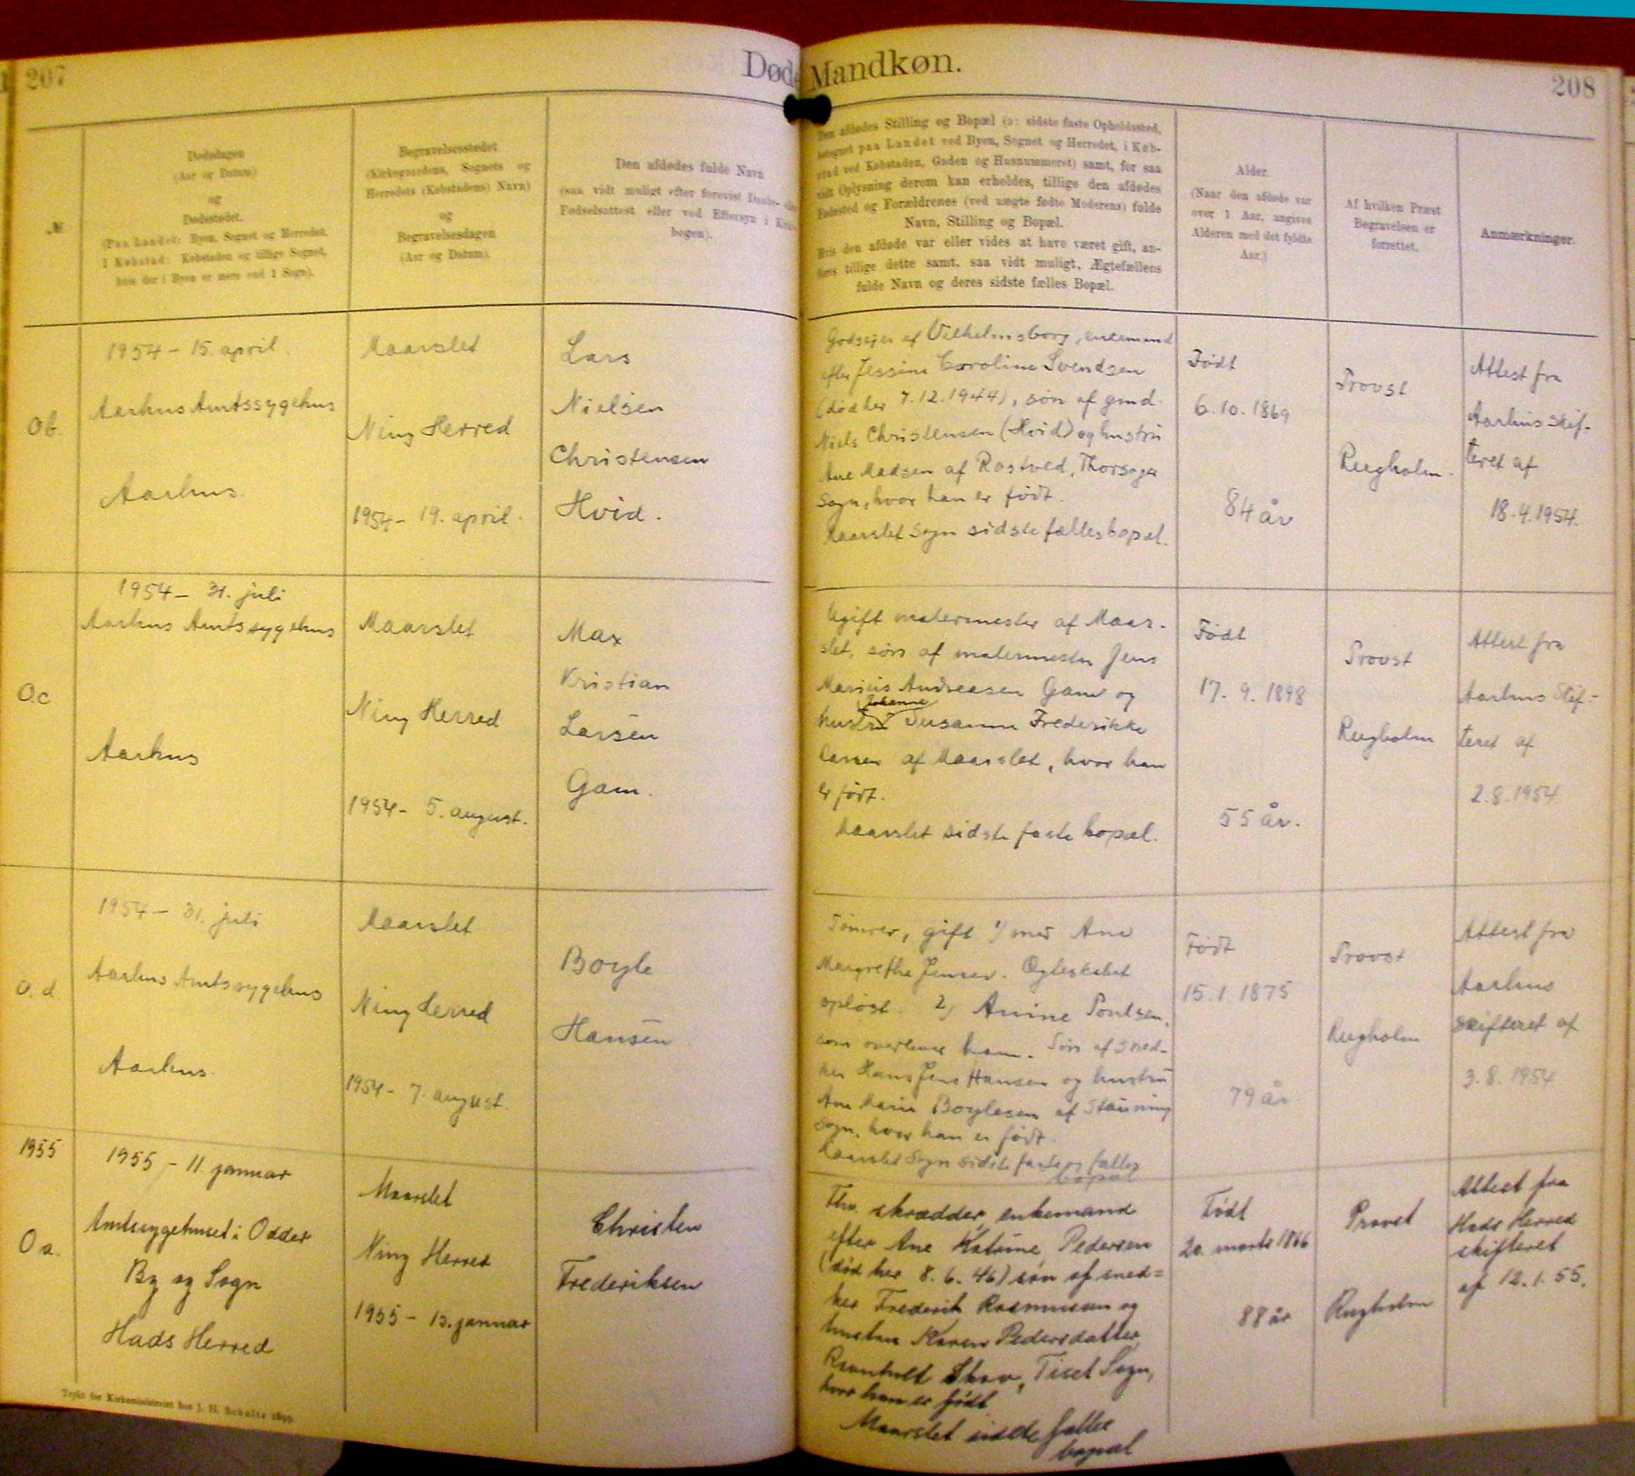 207
Døde Mandkøn.
208
№
Dødsdagen
(Aar og Datum)
og
Dødsstedet.
(Paa Landet: Byen, Sognet og Herredet,
I Købstad: Købstaden og tillige Sognet,
hvis der i Byen er mere end 1 Sogn).
Begravelsesstedet
(Kirkegaardens, Sognets og
Herredets (Købstadens) Navn)
og
Begravelsesdagen
(Aar og Datum).
Den afdødes fulde Navn
(saa vidt muligt efter forevist Daabs- eller
Fødselsattest eller ved Eftersyn i
bogen).
Den afdødes Stilling og Bopæl (ɔ: sidste faste Opholdssted,
betegnet paa Landet ved Byen, Sognet og Herredet, i Køb-
stad ved Købstaden, Gaden og Husnummeret) samt, for saa
vidt Oplysning derom kan erholdes, tillige den afdødes
Fødested og Forældrenes (ved uægte fødte Moderens) fulde
Navn, Stilling og Bopæl.
Hvis den afdøde var eller vides at have været gift, an-
føres tillige dette samt, saa vidt muligt, Ægtefællens
fulde Navn og deres sidste fælles Bopæl.
Alder.
(Naar den afdøde var
over 1 Aar, angives
Alderen med det fyldte
Aar.)
Af hvilken Præst
Begravelsen er
forrettet.
Anmærkninger.
Ob.
1954 - 15. april.
Aarhus Amtssygehus
Aarhus.
Maarslet
Ning Herred
1954 - 19. april.
Lars
Nielsen
Christensen
Hvid.
Godsejer af Vilhelmsborg, enkemand
efter Jessine Caroline Svendsen
(død her 7.12.1944), søn af gmd.
Niels Christensen (Hvid) og hustru
Ane Madsen af Rostved, Thorsager
Sogn, hvor han er født.
Maarslet Sogn sidste fælles bopæl.
Født
6.10.1869
84 år
Provst
Rugholm.
Attest fra
Aarhus skif-
teret af
18.4.1954.
O.c
1954 - 31. juli
Aarhus Amtssygehus
Aarhus
Maarslet
Ning Herred
1954 - 5. august.
Max
Kristian
Larsen
Gam.
Ugift malermester af Maar-
slet, søn af malermester Jens
Marius Andreasen Gam og
Johanne
hustru Susanne Frederikke
Larsen af Maarslet, hvor han
er født.
Maarslet sidste faste bopæl.
Født
17.9.1898
55 år.
Provst
Rugholm
Attest fra
Aarhus Skif-
teret af
2.8.1954
O.d
1954 - 31. juli
Aarhus Amtssygehus
Aarhus.
Maarslet
Ning Herred
1954 - 7. august.
Boyle
Hansen
Tømrer, gift 1/ med Ane
Margrethe Jensen. Ægteskabet
opløst. 2/ Anine Poulsen,
som overlever ham. Søn af Sned-
ker Hans Jens Hansen og hustru
Ane Marie Boylesen af Stauning
Sogn, hvor han er født.
Maarslet Sogn sidste faste og fælles
bopæl
Født
15.1.1875
79 år
Provst
Rugholm
Attest fra
Aarhus
skifteret af
3.8.1954
1955
O a.
1955 - 11. januar
Amtssygehuset i Odder
By og Sogn
Hads Herred
Maarslet
Ning Herred
1955 - 15. januar
Christen
Frederiksen
Fhv. skrædder, enkemand
efter Ane Katrine Pedersen
(død her 8.6.46) søn af sned=
ker Frederik Rasmussen og
hustru Karen Pedersdatter,
Ravnholt Skov, Tiset Sogn,
hvor han er født.
Maarslet sidste fælles
bopæl
Født
20. marts 1866
88 år
Provst
Rugholm
Attest fra
Hads Herred
skifteret
af 12.1.55.
Trykt for Kirkeministeriet hos J. H. Schultz 1899.